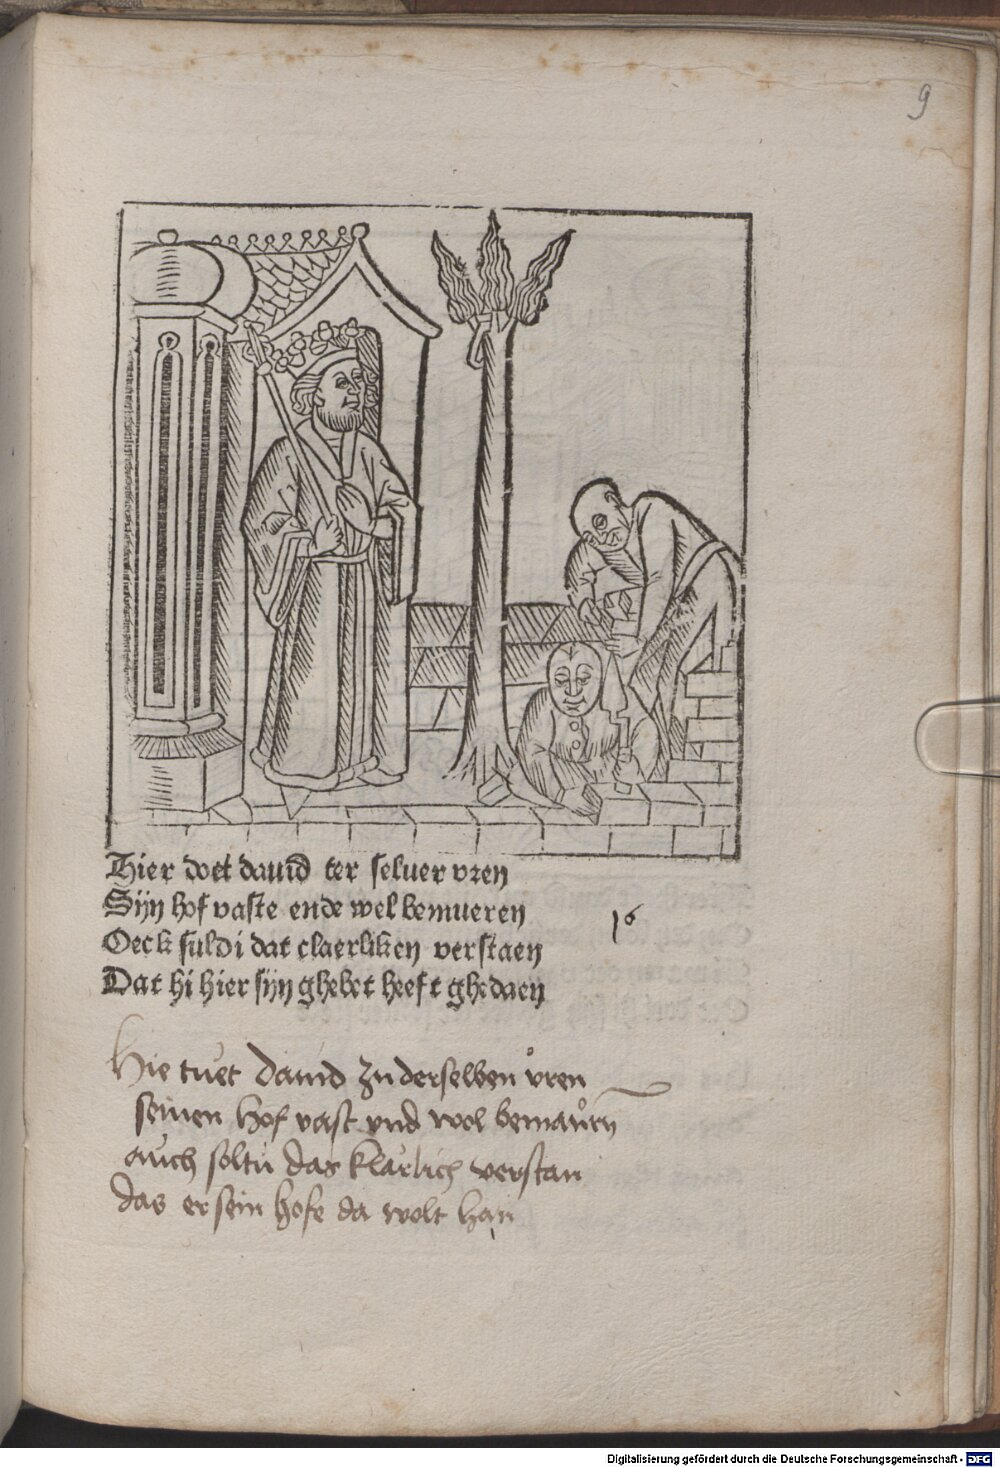 9
Hier doet dauid ter seluer vren
Sijn hof vaste ende wel bemueren
Oeck suldi dat claerliken verstaen
Dat hi hier sijn ghebet heeft ghedaen
16
Hie tuet dauid zu der selben vren
seinen hof vast vnd wol bemaurn
auch soltu das klarlich verstan
das er sein hofe da wolt han
Digitalisierung gefördert durch die Deutsche Forschungsgemeinschaft - DFG